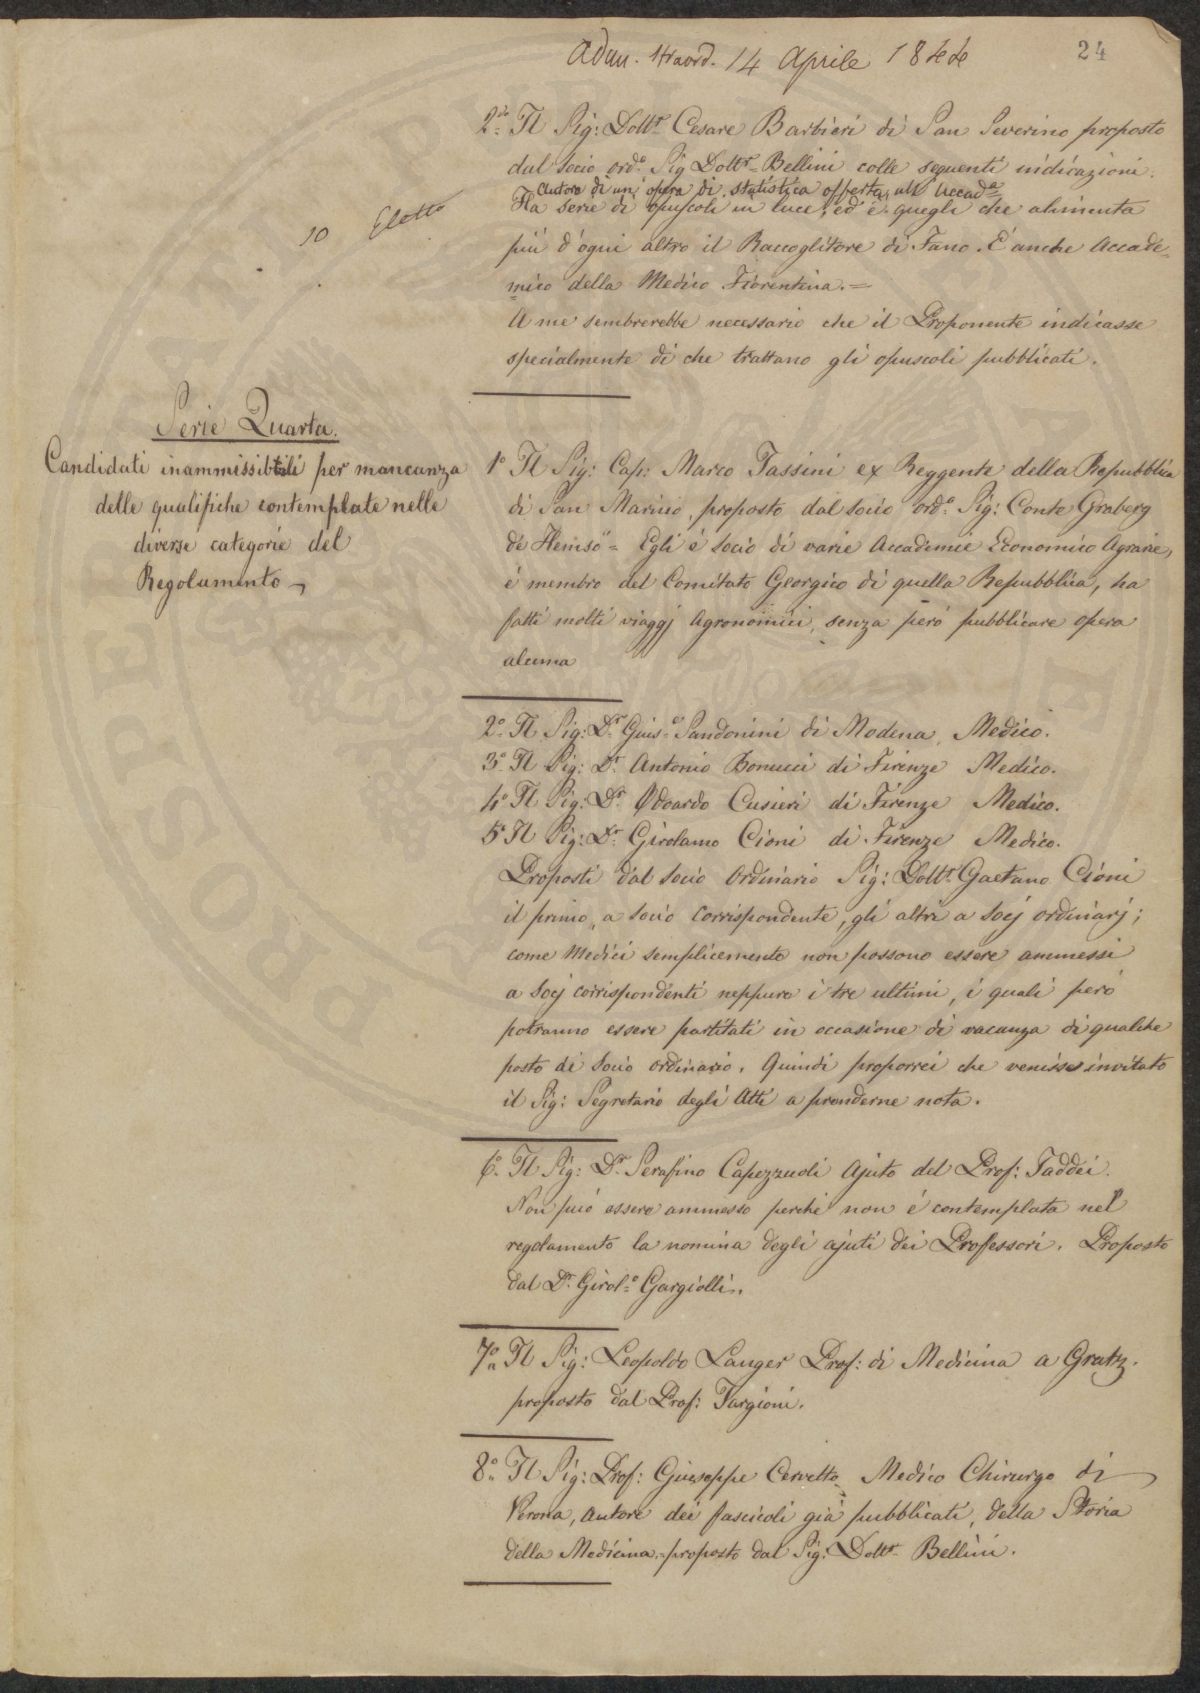 Adun. straord. 14 Aprile 1844
24
2do Il Sig: Dottr. Cesare Barbieri di San Severino proposto
dal socio ordo. Sig Dottr. Bellini colle seguenti indicazioni:
autore di un' opera di statistica offerta all' Accada.
Ha serie di opuscoli in luce, ed è quegli che alimenta
10 Eletto
più d'ogni altro il Raccoglitore di Fano. È anche Accade-
mico della Medico Fiorentina.=
A me sembrerebbe necessario che il Proponente indicasse
specialmente di che trattano gli opuscoli pubblicati.
Serie Quarta.
Candidati inammissibili per mancanza
delle qualifiche contemplate nelle
diverse categorie del
Regolamento
1° Il Sig: Cap: Marco Tassini ex Reggente della Repubblica
di San Marino, proposto dal socio ordo. Sig: Conte Graberg
de Hemsö = Egli è socio di varie Accademie Economico Agrarie,
è membro del Comitato Georgico di quella Repubblica, ha
fatti molti viaggj Agronomici, senza però pubblicare opera
alcuna
2° Il Sig: Dr. Guise. Sandonini di Modena, Medico.
3° Il Sig: Dr. Antonio Bonucci di Firenze Medico.
4° Il Sig: Dr. Odoardo Cusieri di Firenze Medico.
5° Il Sig: Dr. Girolamo Cioni di Firenze Medico.
Proposti dal socio Ordinario Sig: Dottr. Gaetano Cioni
il primo, a socio corrispondente, gli altri a Socj ordinarj;
come Medici semplicemente non possono essere ammessi
a Socj corrispondenti neppure i tre ultimi, i quali però
potranno essere partitati in occasione di vacanza di qualche
posto di Socio ordinario. Quindi proporrei che venisse invitato
il Sig: Segretario degli Atti a prenderne nota.
6° Il Sig: Dr. Serafino Capezzuoli Ajuto del Prof: Taddei.
Non può essere ammesso perchè non è contemplata nel
regolamento la nomina degli ajuti dei Professori. Proposto
dal Dr. Girolo. Gargiolli.
7° Il Sig: Leopoldo Langer Prof: di Medicina a Gratz.
proposto dal Prof: Targioni.
8° Il Sig: Prof: Giuseppe Cervetto Medico Chirurgo di
Verona, autore dei fascicoli già pubblicati, della Storia
della Medicina, proposto dal Sig: Dottr. Bellini.